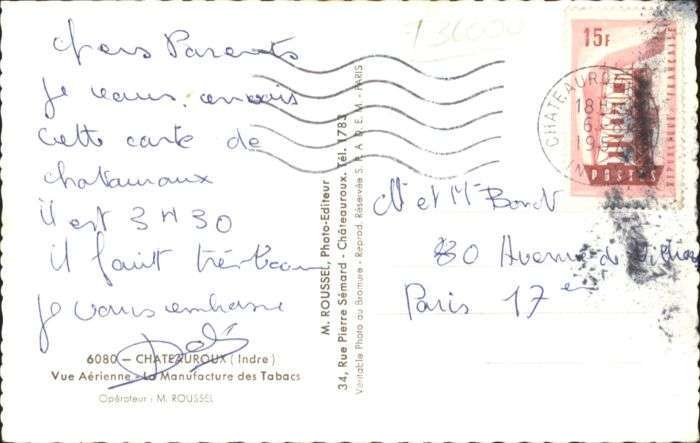 chers Parents
je vous envois
cette carte de
chatauroux
il est 3 H 30
il fait très beau
je vous embrasse
6080 — CHATEAUROUX (Indre)
Vue Aérienne - La Manufacture des Tabacs
Opérateur : M. ROUSSEL
M. ROUSSEL, Photo-Editeur
34, Rue Pierre Sémard - Châteauroux. Tél. 1783
Véritable Photo au Bromure - Reprod. Réservée S.P.A.D.E.M. - PARIS
36000
15F
POSTES
REPUBLIQUE FRANÇAISE
CHATEAUROUX
18H
6
19
IN
Mr et Me
80 Avenue de Villiers
Paris 17 em